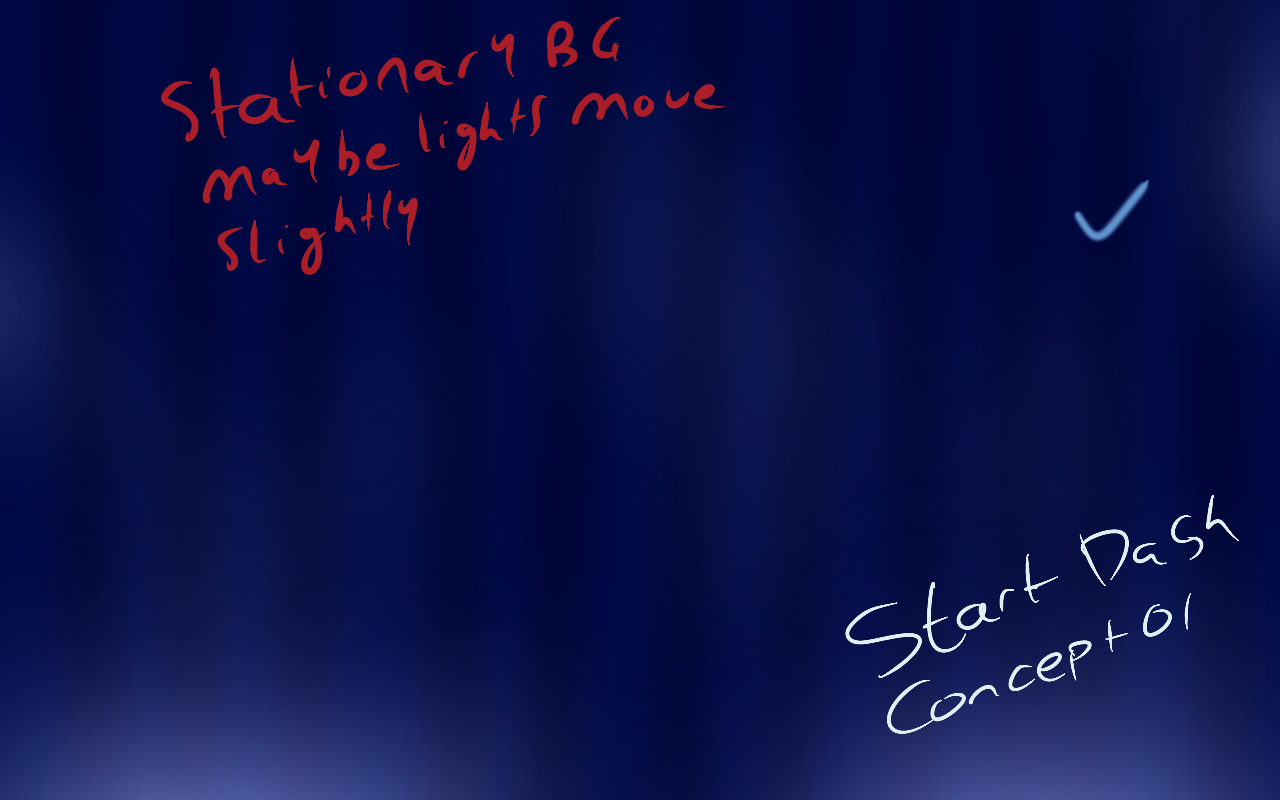 Stationary BG
maybe lights move
slightly
Start Dash
Concept 01